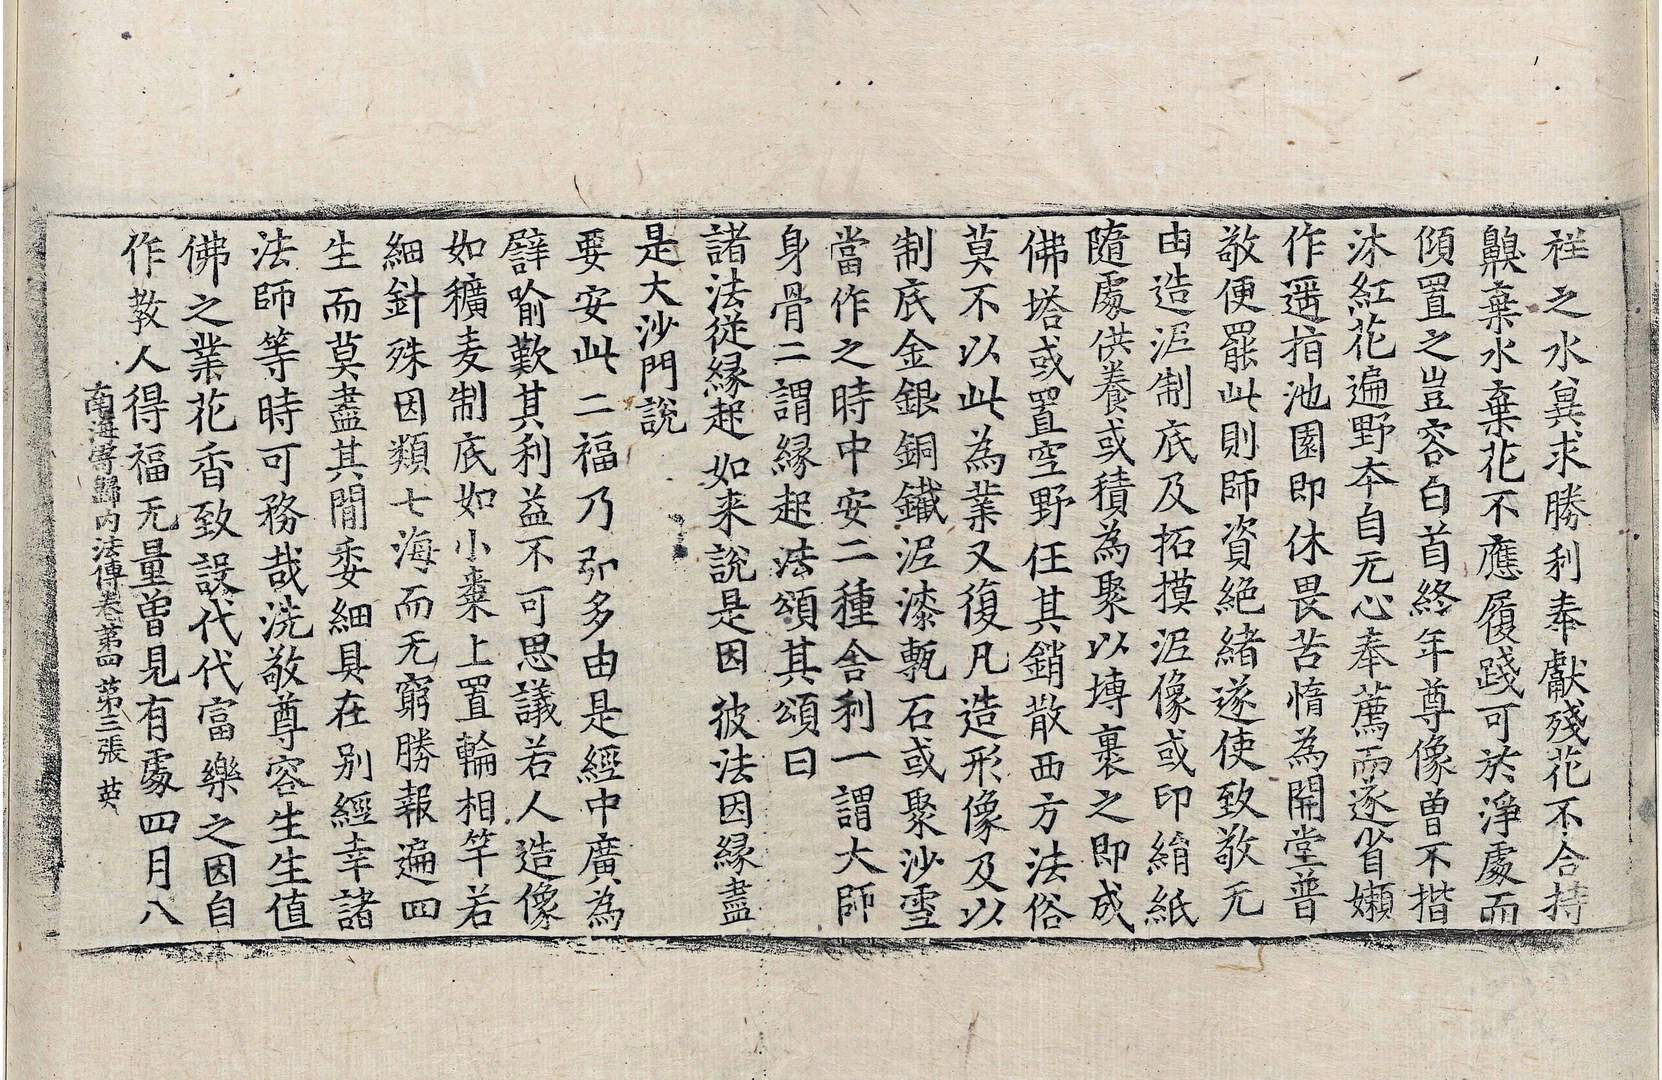 祥之水冀求勝利奉獻殘花不合持
齅棄水棄花不應履踐可於淨處而
傾置之豈容白首終年尊像曾不揩
沐紅花遍野本自无心奉薦而遂省嬾
作遥指池園即休畏苦惰為開堂普
敬便罷此則師資絕緒遂使致敬无
由造泥制底及拓摸泥像或印絹紙
隨處供養或積為聚以塼裹之即成
佛塔或置空野任其銷散西方法俗
莫不以此為業又復凡造形像及以
制底金銀銅鐵泥漆甎石或聚沙雪
當作之時中安二種舍利一謂大師
身骨二謂縁起法頌其頌曰
諸法從縁起如来說是因彼法因縁盡
是大沙門說
要安此二福乃弥多由是經中廣為
譬喻歎其利益不可思議若人造像
如穬麦制底如小棗上置輪相竿若
細針殊因類七海而无窮勝報遍四
生而莫盡其間委細具在别經幸諸
法師等時可務哉洗敬尊容生生值
佛之業花香致設代代富樂之因自
作教人得福无量曾見有處四月八
南海寄歸内法傳卷第四 第三張 英